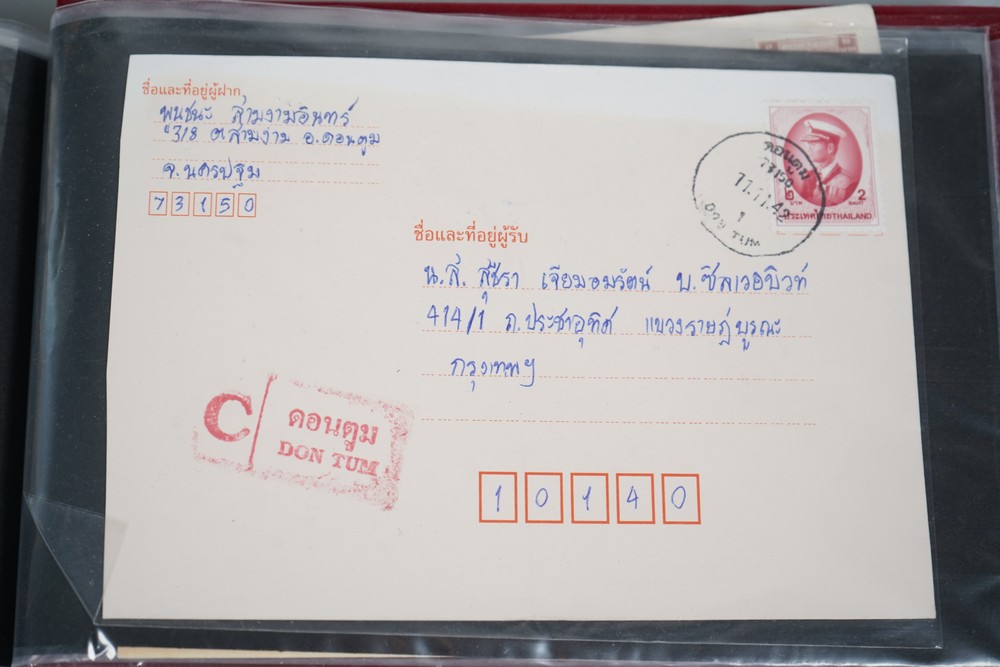 ชื่อและที่อยู่ผู้ฝาก
พนชนะ สามงามอินทร์
318 ต.สามง่าม อ.ดอนตูม
จ.นครปฐม
73150
ดอนตูม
73150
11.11.42
1
DON TUM
๒ บาท 2 BAHT
ประเทศไทย THAILAND
ชื่อและที่อยู่ผู้รับ
น.ส. สุชีรา เจียมอมรัตน์ บ.ซิลเวอบิวท์
414/1 ถ.ประชาอุทิศ แขวงราษฎ์บูรณะ
กรุงเทพฯ
C ดอนตูม
DON TUM
10140